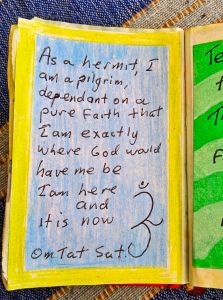 As a hermit, I
am a pilgrim,
dependant on a
pure Faith that
I am exactly
where God would
have me be
I am here
and
it is now
ॐ
Om Tat Sat.
Te